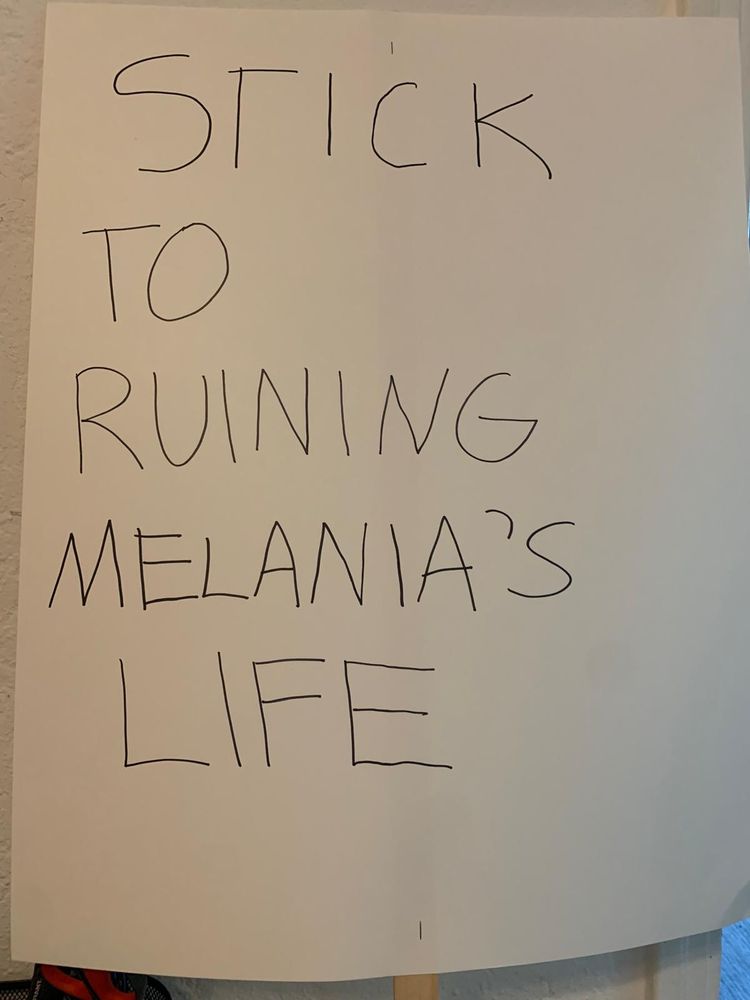 STICK
TO
RUINING
MELANIA'S
LIFE